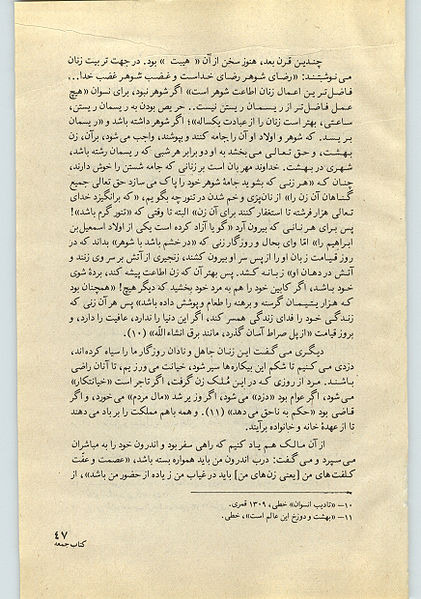 چندین قرن بعد، هنوز سخن از آن « هیبت » بود. در جهت تربیت زنان
می‌نوشتند: «رضای شوهر رضای خداست و غضب شوهر غضب خدا...
فاضل‌ترین اعمال زنان اطاعت شوهر است» اگر شوهر نبود، برای نسوان «هیچ
عمل فاضل‌تر از ریسمان ریستن نیست.. حریص بودن به ریسمان ریستن،
ساعتی، بهتر است زنان را از عبادت یکساله»؛ اگر شوهر داشته باشد و «ریسمان
بریسد. که شوهر و اولاد او آن را جامه کنند و بپوشند، واجب می‌شود، برآن، زن
بهشت، و حق تعالی می‌بخشد به او دو برابر هر شبی که ریسمان رشته باشد،
شهری در بهشت. خداوند مهربان است بر زنانی که جامه شستن را خوش دارند،
چنان که «هر زنی که بشوید جامهٔ شوهر خود را پاک می‌سازد حق تعالی جمیع
گناهان آن زن را» از نان‌پزی و خم شدن در تنور چه بگویم، «که برانگیزد خدای
تعالی هزار فرشته تا استغفار کنند برای آن زن» البته تا وقتی که «تنور گرم باشد»!
پس برای هر نانی که بیرون آرد «گویا آزاد کرده است یکی از اولاد اسمعیل‌بن
ابراهیم را» امّا وای بحال و روزگار زنی که «در خشم باشد با شوهر» بداند که در
روز قیامت زبان او را از پس سر او بیرون کشند، زنجیری از آتش بر سر وی زنند و
آتش در دهان او» زبانه کشد. پس بهتر آن که زن اطاعت پیشه کند، بردهٔ شوی
خود باشد، اگر کابین خود را هم به مرد خود بخشید که دیگر هیچ! «همچنان بود
که هزار یتیمان گرسنه و برهنه را طعام و پوشش داده باشد» پس هر آن زنی که
زندگی خود را فدای زندگی همسر کند، اگر این دنیا را ندارد، عاقبت را دارد، و
بروز قیامت «از پل صراط آسان گذرد، مانند برق انشاءاللّه» (۱۰).
دیگری می‌گفت این زنان جاهل و نادان روزگار ما را سیاه کرده‌اند،
دزدی می‌کنیم تا شکم این بیکاره‌ها سیر شود، خیانت می‌ورزیم، تا آنان راضی
باشند. مرد از روزی که در این مُلک زن گرفت، اگر تاجر است «خیانتکار»
می‌شود، اگر عوام بود «دزد» می‌شود، اگر وزیر شد «مال مردم» می‌خورد، و اگر
قاضی بود «حکم به ناحق می‌دهد» (۱۱). و همه باهم مملکت را بر باد می‌دهند
تا از عهدهٔ خانه و خانواده برآیند.
از آن مالک هم یاد کنیم که راهی سفر بود و اندرون خود را به مباشران
می‌سپرد و می‌گفت: درب اندرون من باید همواره بسته باشد، «عصمت و عفّت
کلفت‌های من [یعنی زن‌های من] باید در غیاب من زیاده از حضور من باشد»، از
۱۰– «تادیب النسوان» خطی، ۱۳۰۹ قمری.
۱۱– «بهشت و دوزخ این عالم است»، خطی.
۴۷
کتاب جمعه